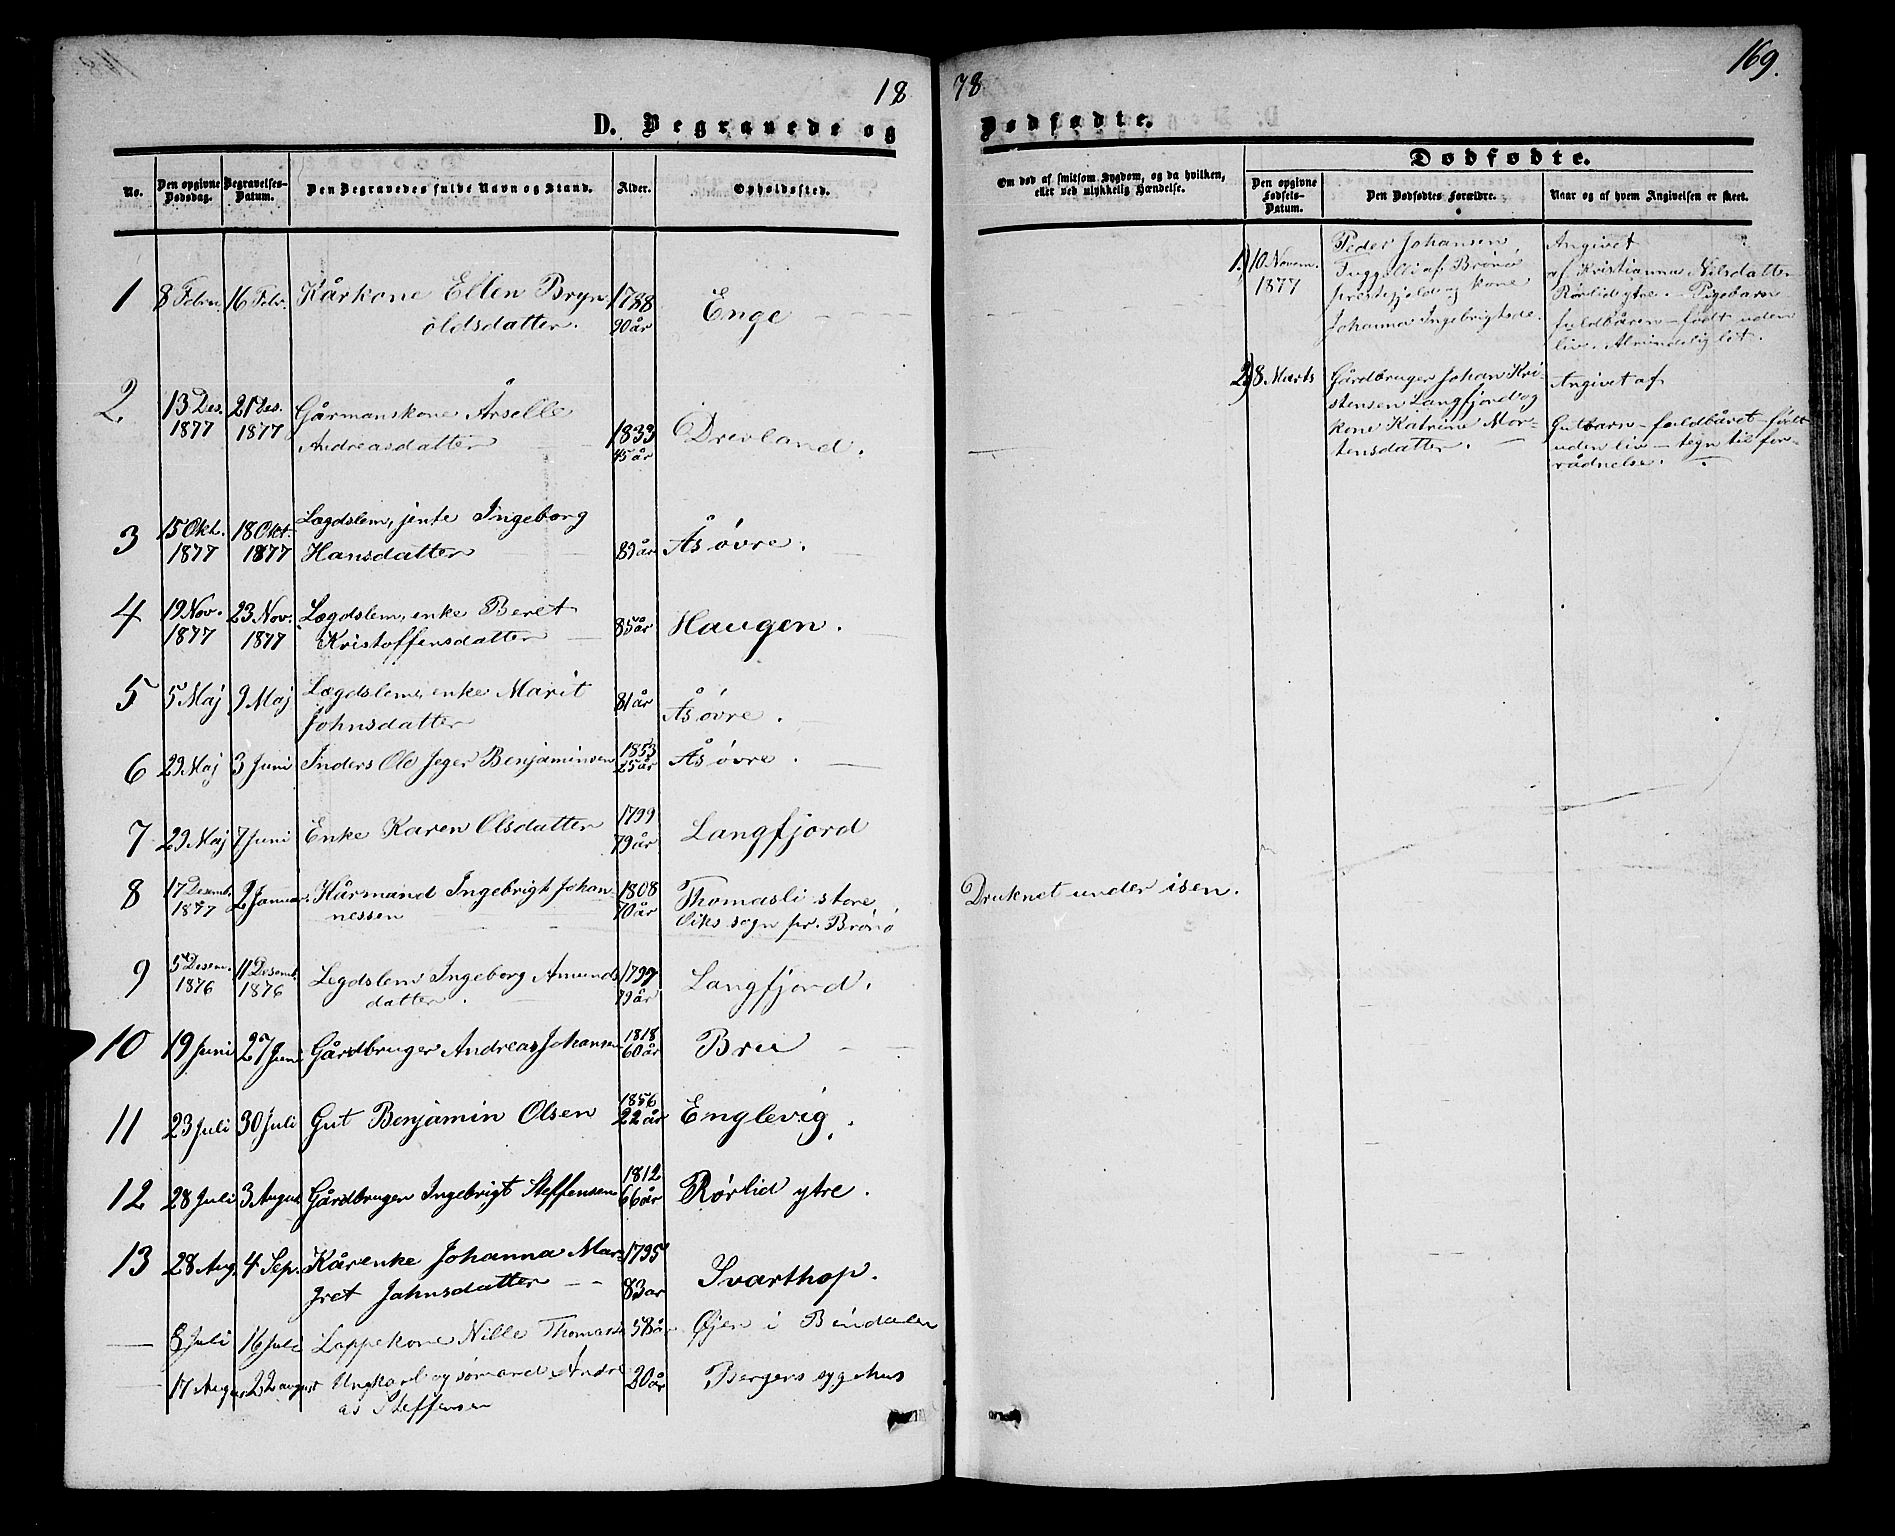 169.
18 78
D. Begravede og Dødfødte.
No.
Den opgivne Dødsdag.
Begravelses-Datum.
Den Begravedes fulde Navn og Stand.
Alder.
Opholdssted.
Om død af smitsom Sygdom, og da hvilken,
eller ved ulykkelig Hændelse.
Dødfødte.
Den opgivne Fødsels-Datum.
Den Dødfødtes Forældre.
Naar og af hvem Angivelsen er skeet.
1 8 Febru 16 Febr. Kårkone Ellen Bryn 1788 Enge
oldsdatter. 90 år
2. 13 Des. 21 Des. Gårmanskone Årselle 1833 Drevland.
1877 1877 Andreasdatter 45 år
3 15 Okt. 18 Okt. Lægdslem, jente Ingeborg
1877 1877 Hansdatter 83 år Ås øvre.
4 19 Nov. 23 Nov. Lægdslem, enke Beret 85 år Haugen.
1877 1877 Kristoffersdatter
5 5 Maj 9 Maj Lægdslem, enke Marit 81 år Ås øvre.
Johnsdatter
6 29 Maj 3 Juni Inders Ole Jeger Benjaminsen 1853 Ås øvre.
25 år
7 29 Maj 7 Juni Enke Karen Olsdatter 1799 Langfjord
79 år
8 17 Desemb. 2 Januar. Kårmand Ingebrigt Johan 1808 Thomasli store
1877 nessen 70 år Viks sogn pr. Brønø
Druknet under isen.
9 5 Desem. 11 Desemb. Legdslem Ingeborg Amunds 1797 Langfjord.
1876 1876 datter. 79 år
10 19 Juni 27 Juni Gårdbruger Andreas Johansen 1818 Bru
60 år
11 23 Juli 30 Juli Gut Benjamin Olsen 1856 Englevig.
22 år
12 28 Juli 3 August Gårdbruger Ingebrigt Steffensen 1812 Rørlid ytre.
66 år
13 28 Aug. 4 Sep. Kårenke Johanna Mar- 1795 Svarthop.
gret Jahnsdatter 83 ar
8 Juli 16 Juli Lappekone Nille Thomasd 58 år Øjen i Bindalen
17 Augus 22 august Ungkarl og sømand Andre 20 år Bergens sygehus
as Steffensen
1.) 10 Novem.
1877
Peder Johansen,
af Brønø
præstegjeld og kone
Johanna Ingebrigtsd.
Angivet
af Kristianna Nilsdatter
Rørlid ytre. – Pigebarn
fuldbåren – født uden
liv. Almindelig let.
2.) 8 Marts
Gårdbruger Johan Kri-
stensen Langfjord og
kone Katrine Mor-
tensdatter.
Angivet af
Gutbarn – fuldbåret – født
uden liv – tegn til for-
rådnelse.